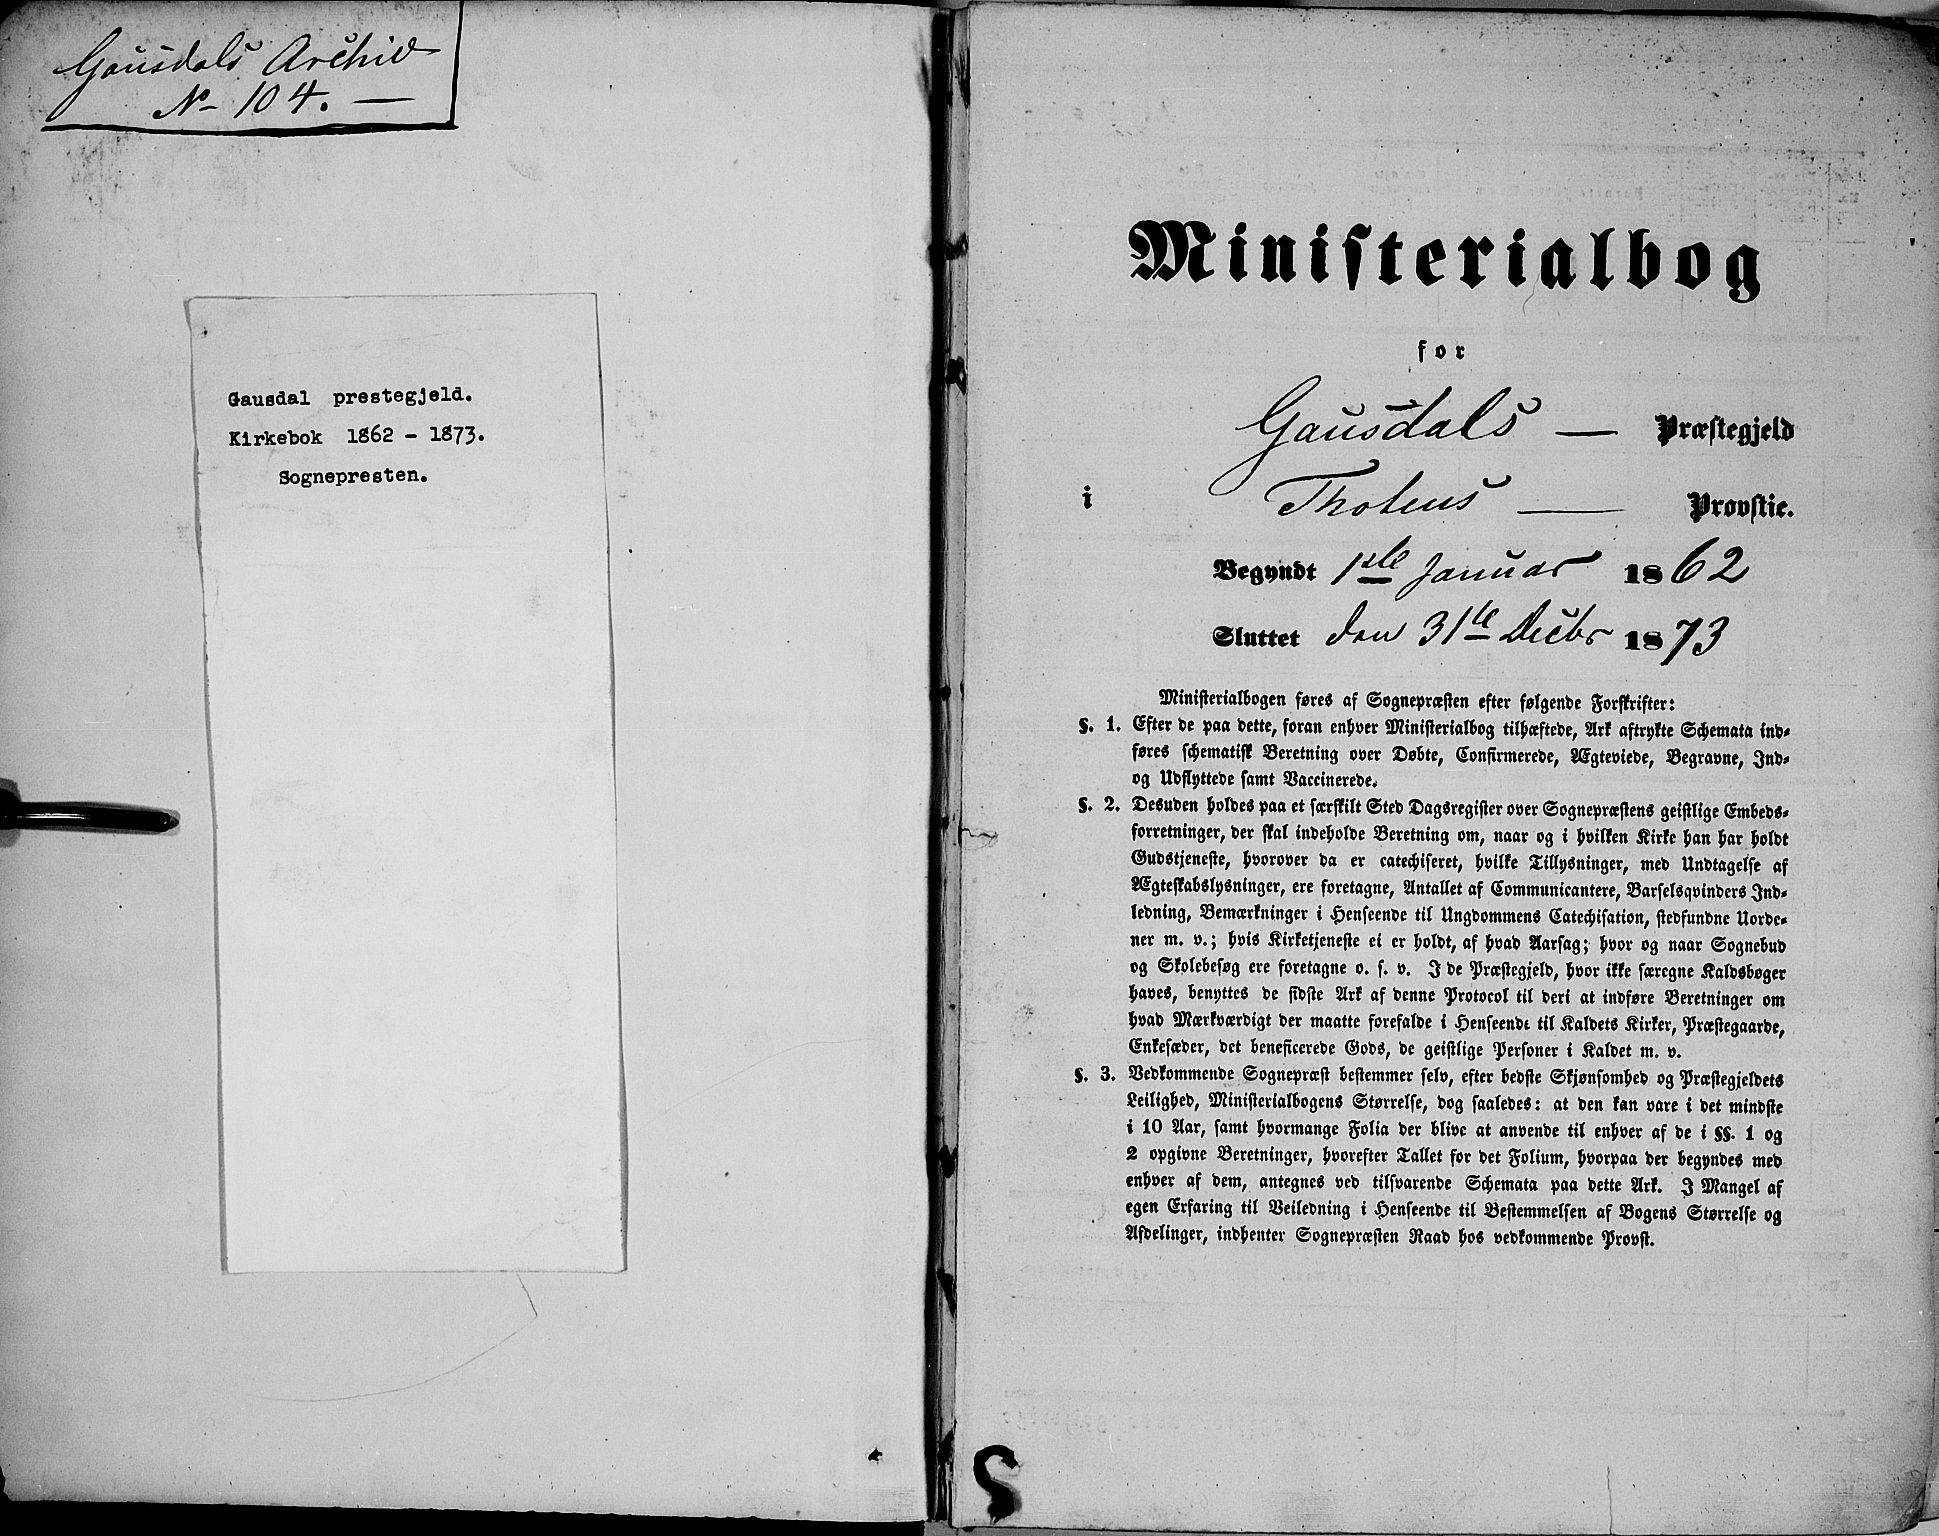 Gausdals Archiv
No 104. —
Gausdal prestegjeld.
Kirkebok 1862 - 1873.
Sognepresten.
Ministerialbog
for
Gausdals — Præstegjeld
i Thotens — Provstie.
Begyndt 1ste Januar 1862
Sluttet den 31te Decbr 1873
Ministerialbogen føres af Sognepræsten efter følgende Forskrifter:
§. 1. Efter de paa dette, foran enhver Ministerialbog tilhæftede, Ark aftrykte Schemata ind-
føres schematisk Beretning over Døbte, Confirmerede, Ægteviede, Begravne, Ind-
og Udflyttede samt Vaccinerede.
§. 2. Desuden holdes paa et særskilt Sted Dagsregister over Sognepræstens geistlige Embeds-
forretninger, der skal indeholde Beretning om, naar og i hvilken Kirke han har holdt
Gudstjeneste, hvorover da er catechiseret, hvilke Tillysninger, med Undtagelse af
Ægteskabslysninger, ere foretagne, Antallet af Communicantere, Barselsqvinders Ind-
ledning, Bemærkninger i Henseende til Ungdommens Catechisation, stedfundne Uorde-
ner m. v.; hvis Kirketjeneste ei er holdt, af hvad Aarsag; hvor og naar Sognebud
og Skolebesøg ere foretagne o. s. v. I de Præstegjeld, hvor ikke særegne Kaldsbøger
haves, benyttes de sidste Ark af denne Protocol til deri at indføre Beretninger om
hvad Mærkværdigt der maatte forefalde i Henseende til Kaldets Kirker, Præstegaarde,
Enkesæder, det beneficerede Gods, de geistlige Personer i Kaldet m. v.
§. 3. Vedkommende Sognepræst bestemmer selv, efter bedste Skjønsomhed og Præstegjeldets
Leilighed, Ministerialbogens Størrelse, dog saaledes: at den kan vare i det mindste
i 10 Aar, samt hvormange Folia der blive at anvende til enhver af de i §§. 1 og
2 opgivne Beretninger, hvorefter Tallet for det Folium, hvorpaa der begyndes med
enhver af dem, antegnes ved tilsvarende Schemata paa dette Ark. I Mangel af
egen Erfaring til Veiledning i Henseende til Bestemmelsen af Bogens Størrelse og
Afdelinger, indhenter Sognepræsten Raad hos vedkommende Provst.
2